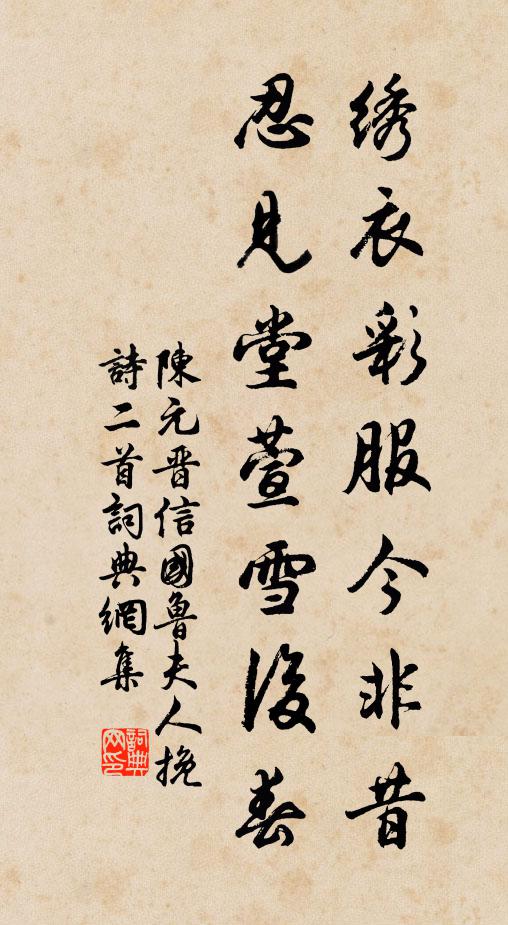 绣衣彩服今非昔
忍见堂萱雪後春
陳元晋信國魯夫人挽
詩二首詞典網集
詞典网印